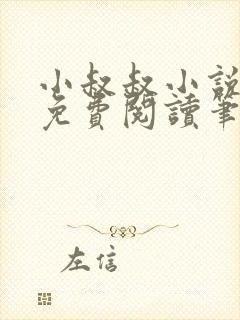 小叔叔小說
免費閱讀筆
左信